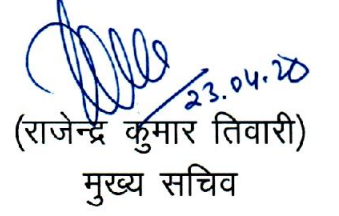 23.04.20
(राजेन्द्र कुमार तिवारी)
मुख्य सचिव